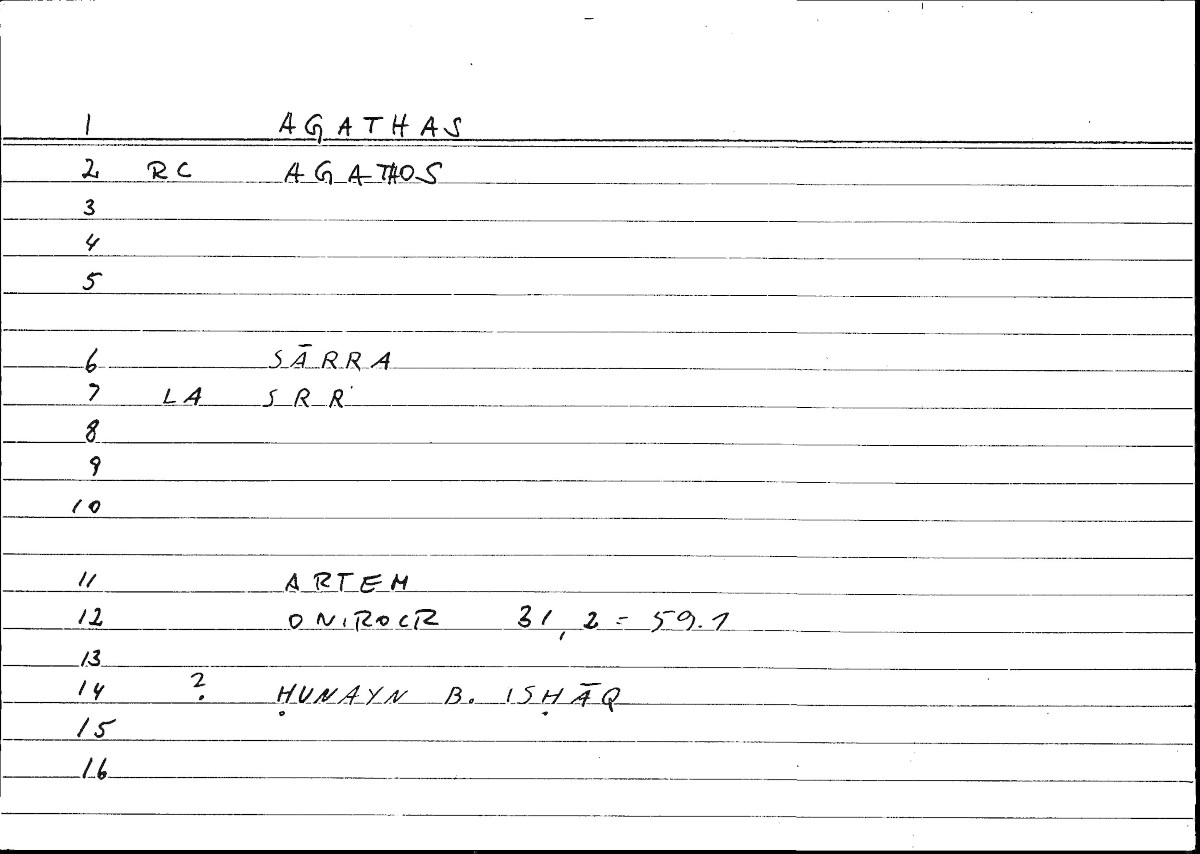 1 AGATHAS
2 RC AGATHOS
3
4
5
6 SĀRRA
7 LA SRR
8
9
10
11 ARTEM
12 ONIROCR 31, 2 = 59.1
13
14 ? ḤUNAYN B. ISḤĀQ
15
16